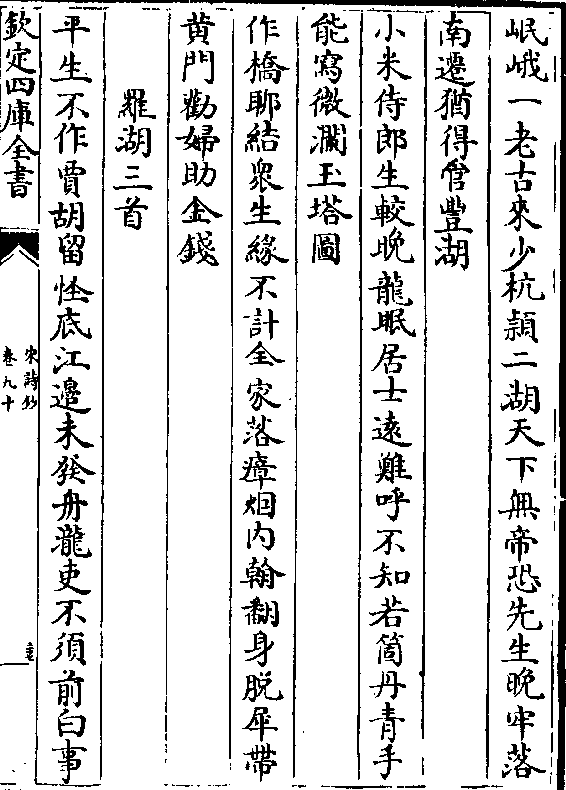 岷峨一老古來少杭頴二湖天下無帝恐先生晚牢落
南遷猶得管豐湖
小米侍郎生較晚龍眠居士遠難呼不知若箇丹青手
能寫微瀾玉塔圖
作橋聊結衆生緣不計全家落瘴烟内翰翻身脱犀帶
黄門勸婦助金錢
羅湖三首
平生不作賈胡留怪底江邊未發舟瀧吏不須前白事
欽定四庫全書
宋詩鈔
卷九十